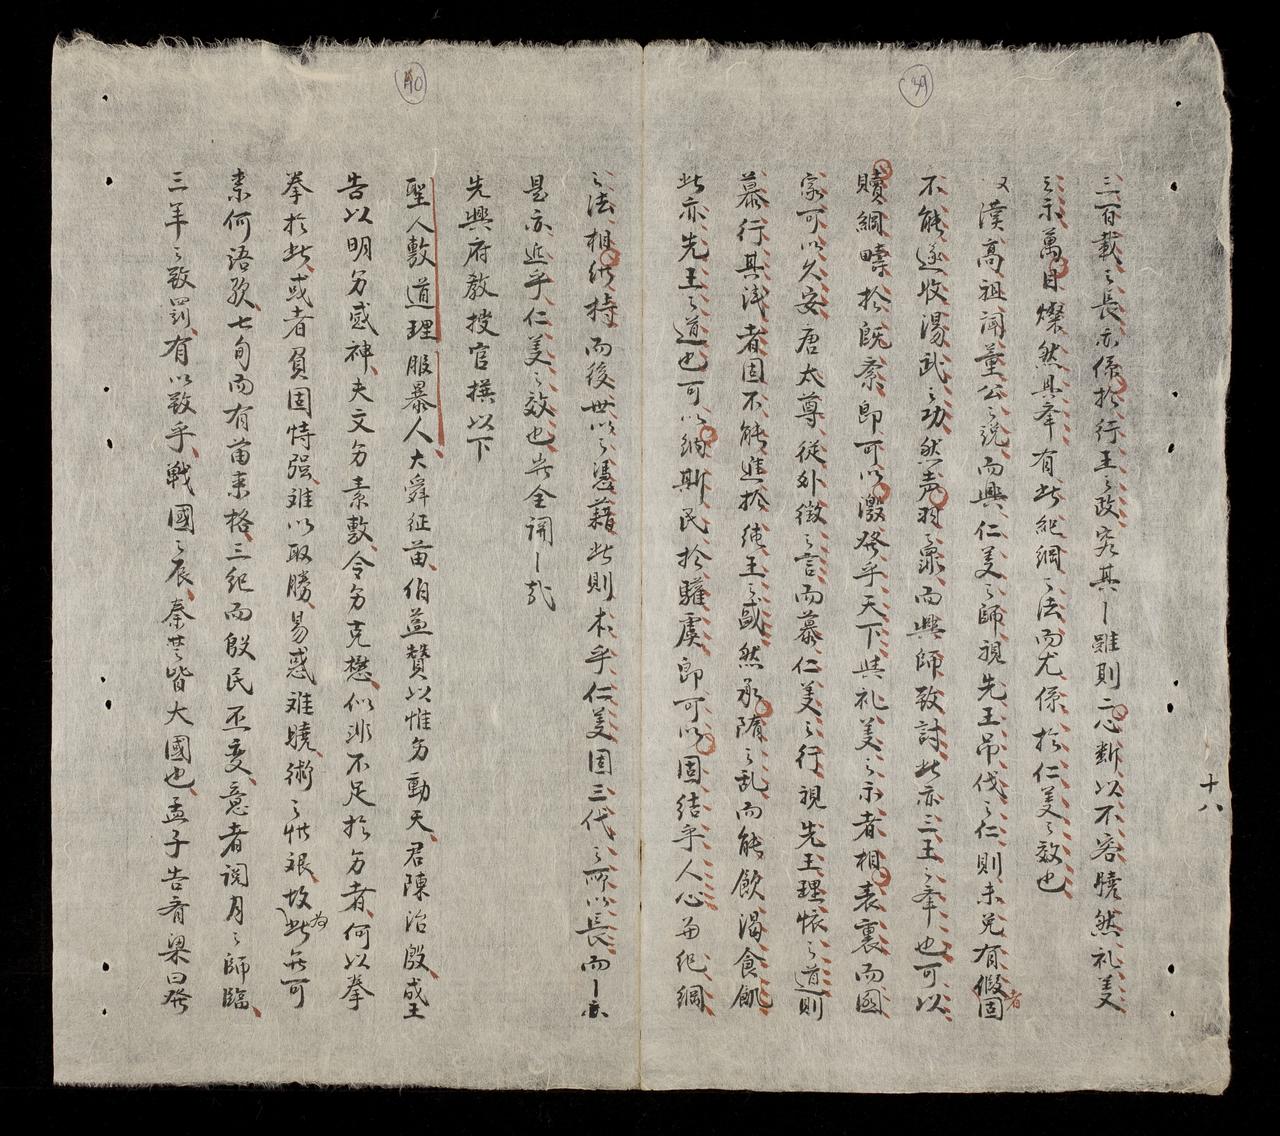 三百載之長亦係於行王之政究其丨雖則一心斷以不容曉然礼美
之示萬目燦然具举有此紀綱之法而尤係於仁美之效也
漢高祖闻董公之説而興仁美之師視先王吊伐之仁則未免有假固
者
不能遂收湯武之功然声羽之罪而興師致討此亦三王之举也可以
贖綱疇於既紊即可以激發乎天下共礼美之示者相表裏而國
家可以久安唐太尊從外徵之言而慕仁美之行視先王理怀之道則
慕行其浅者固不能進於純王之盛然承隋之乱而能飲渴食飢
此亦先王之道也可以納斯民於驩虞即可以固结乎人心與紀綱
之法相維持而後世以之憑藉此則本乎仁美固三代之所以長而丨亦
是亦近乎仁美之效也岂全闻丨哉
先興府教授官撰以下
聖人敷道理服暴人大舜征苗伯益贊以惟多動天君陳治殷成王
告以明多感神夫文多素敷令多克懋似non不足於多者何以拳
拳於此或者負固恃强难以取勝易惑难曉術之惟艰故此無可
為
素何语欤七旬而有苗来格三紀而殷民丕变意者閱月之師臨
三年之致罰有以致乎戰國之辰秦楚皆大國也孟子告齊梁曰發
十八
39
40